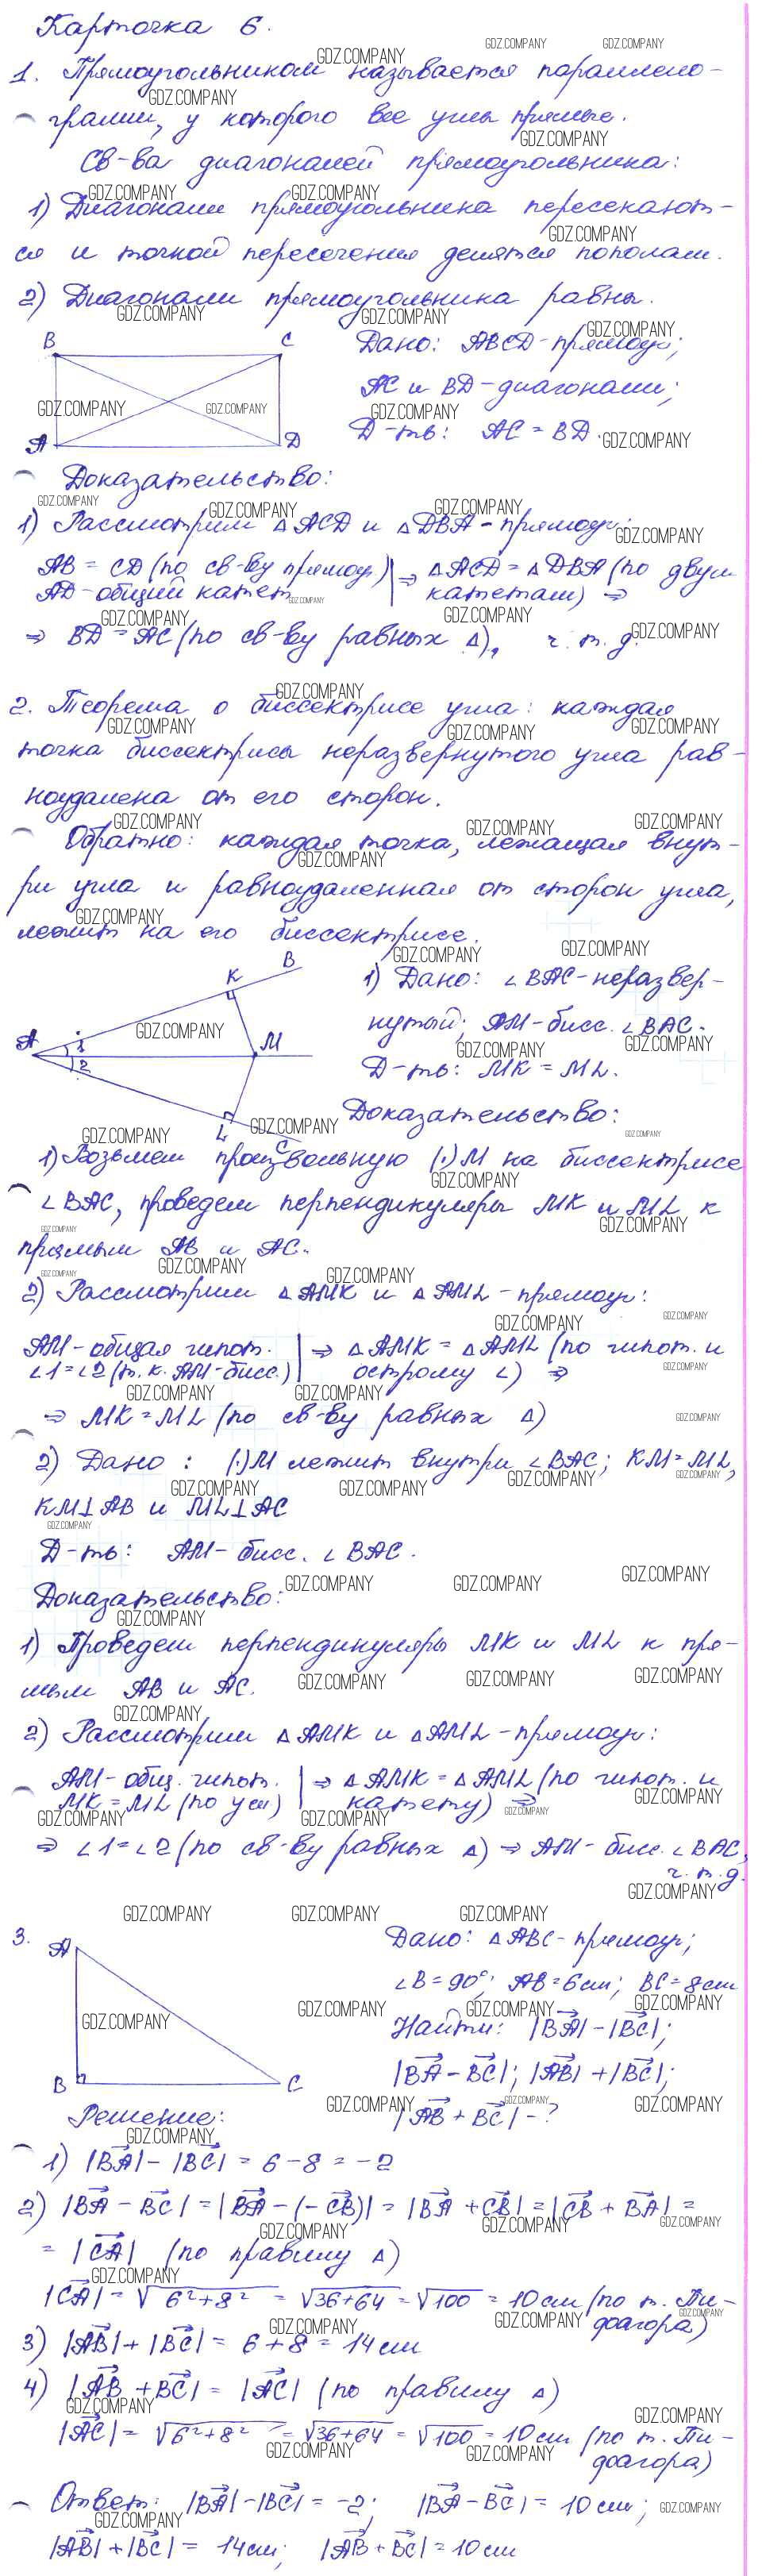 Карточка 6.
1. Прямоугольником называется параллело-
грамм, у которого все углы прямые.
Св-ва диагоналей прямоугольника:
1) Диагонали прямоугольника пересекают-
ся и точкой пересечения делятся пополам.
2) Диагонали прямоугольника равны.
B C
A D
Дано: ABCD - прямоуг;
AC и BD - диагонали;
Д-ть: AC = BD.
Доказательство:
1) Рассмотрим △ACD и △DBA - прямоуг:
AB = CD (по св-ву прямоуг) | ⇒ △ACD = △DBA (по двум
AD - общий катет | катетам) ⇒
⇒ BD = AC (по св-ву равных △), ч.т.д.
2. Теорема о биссектрисе угла: каждая
точка биссектрисы неразвернутого угла рав-
ноудалена от его сторон.
Обратно: каждая точка, лежащая внут-
ри угла и равноудаленная от сторон угла,
лежит на его биссектрисе.
A K B M L C 1 2
1) Дано: ∠BAC - неразвер-
нутый; AM - бисс. ∠BAC.
Д-ть: MK = ML.
Доказательство:
1) Возьмем произвольную (·) M на биссектрисе
∠BAC, проведем перпендикуляры MK и ML к
прямым AB и AC.
2) Рассмотрим △AMK и △AML - прямоуг:
AM - общая гипот. | ⇒ △AMK = △AML (по гипот. и
∠1 = ∠2 (т.к. AM - бисс.) | острому ∠) ⇒
⇒ MK = ML (по св-ву равных △)
2) Дано: (·) M лежит внутри ∠BAC; KM = ML,
KM ⊥ AB и ML ⊥ AC
Д-ть: AM - бисс. ∠BAC.
Доказательство:
1) Проведем перпендикуляры MK и ML к пря-
мым AB и AC.
2) Рассмотрим △AMK и △AML - прямоуг:
AM - общ. гипот. | ⇒ △AMK = △AML (по гипот. и
MK = ML (по усл) | катету) ⇒
⇒ ∠1 = ∠2 (по св-ву равных △) ⇒ AM - бисс. ∠BAC,
ч.т.д.
3.
A B C
Дано: △ABC - прямоуг;
∠B = 90°; AB = 6 см; BC = 8 см
Найти: |BA| - |BC|;
|BA - BC|; |AB| + |BC|;
|AB + BC| - ?
Решение:
1) |BA| - |BC| = 6 - 8 = -2
2) |BA - BC| = |BA - (-CB)| = |BA + CB| = |CB + BA| =
= |CA| (по правилу △)
|CA| = √6²+8² = √36+64 = √100 = 10 см (по т. Пи-
фагора)
3) |AB| + |BC| = 6 + 8 = 14 см
4) |AB + BC| = |AC| (по правилу △)
|AC| = √6²+8² = √36+64 = √100 = 10 см (по т. Пи-
фагора)
Ответ: |BA| - |BC| = -2; |BA - BC| = 10 см;
|AB| + |BC| = 14 см; |AB + BC| = 10 см
GDZ.COMPANY